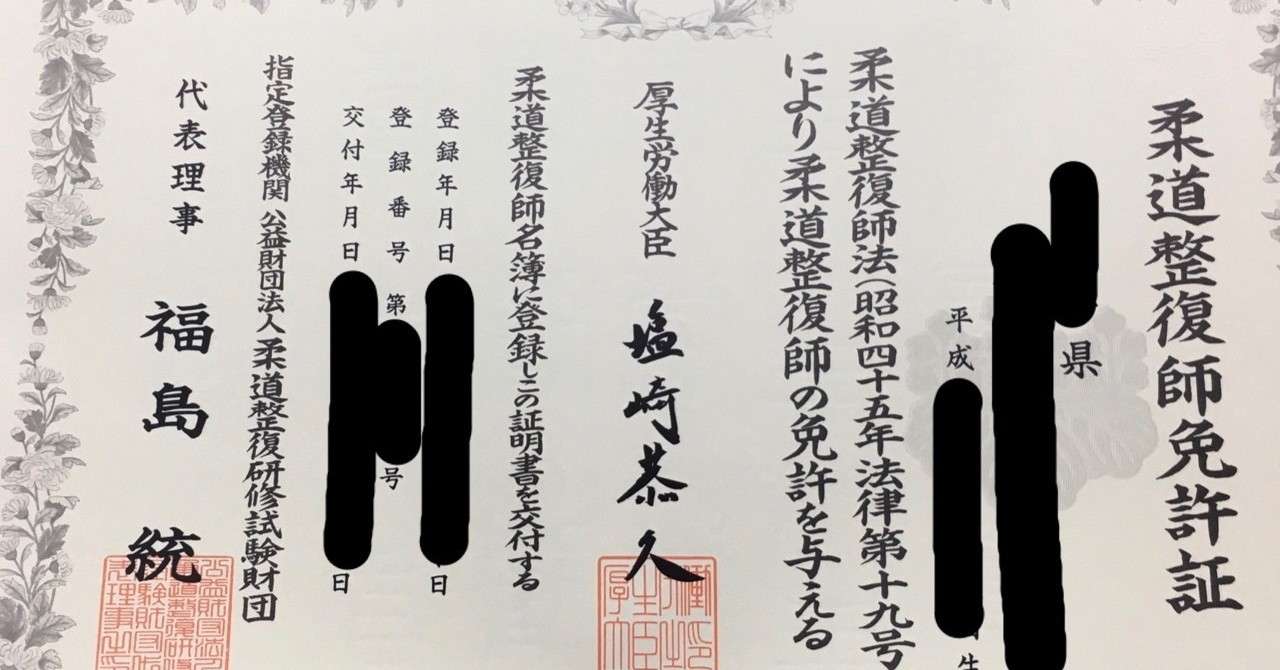 柔道整復師免許証
県
平成
生
柔道整復師法(昭和四十五年法律第十九号)
により柔道整復師の免許を与える
厚生労働大臣 塩崎恭久
柔道整復師名簿に登録しこの証明書を交付する
登録年月日 日
登録番号 第 号
交付年月日 日
指定登録機関 公益財団法人柔道整復研修試験財団
代表理事 福島 統